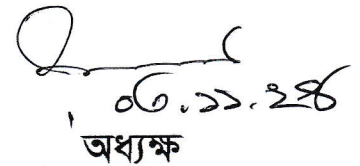 ০৬.১১.২৪
অধ্যক্ষ